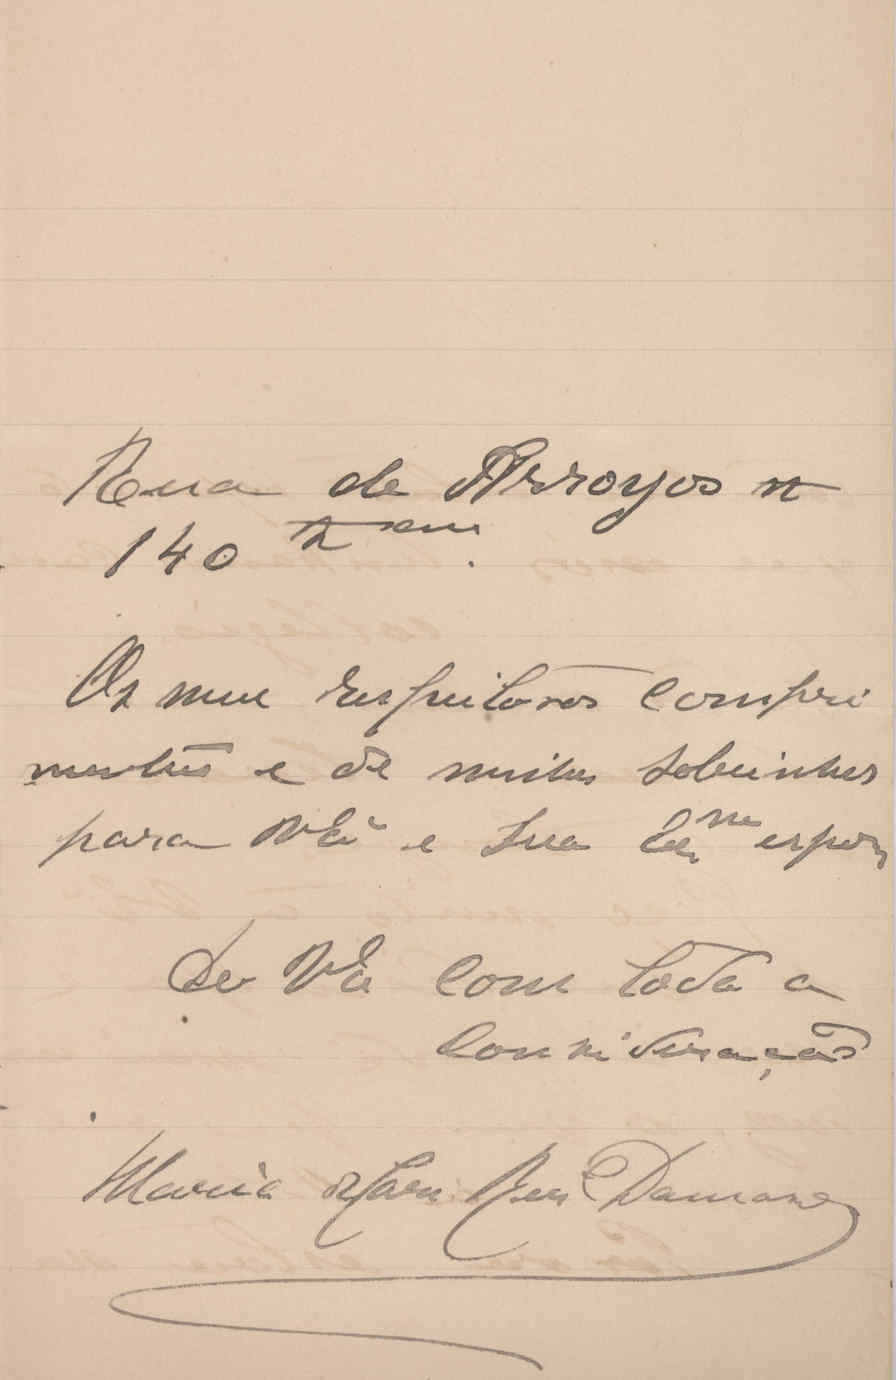 Rua de Arroyos n
140
Os meus respeitosos compri
mentos e de minhas sobrinhas
para V Exª e Sua Exma espoza
De V Exª com toda a
consideração
Maria Damasio